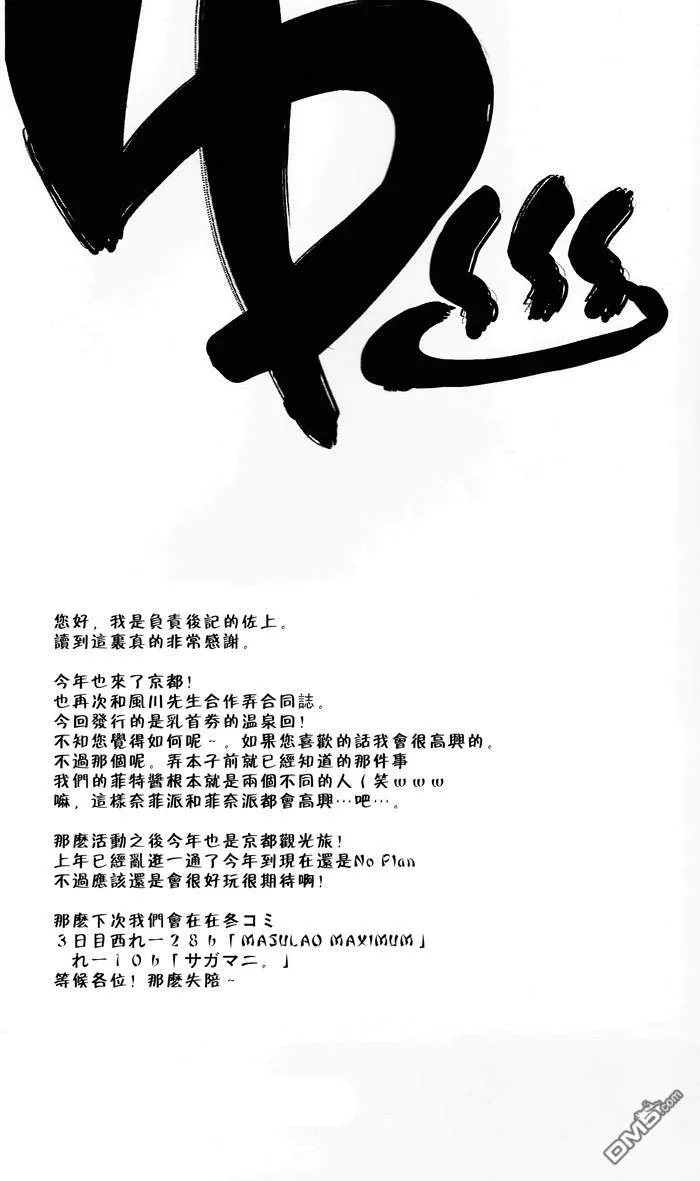 ゆ
您好，我是負責後記的佐上。
讀到這裏真的非常感謝。
今年也來了京都！
也再次和風川先生合作弄合同誌。
今回發行的是乳首券的温泉回！
不知您覺得如何呢~。如果您喜歡的話我會很高興的。
不過那個呢。弄本子前就已經知道的那件事
我們的菲特醬根本就是兩個不同的人（笑ｗｗｗ
嘛，這樣奈菲派和菲奈派都會高興…吧…。
那麽活動之後今年也是京都觀光旅！
上年已經亂逛一通了今年到現在還是No Plan
不過應該還是會很好玩很期待啊！
那麽下次我們會在在冬コミ
３日目西れー２８ｂ「MASULAO MAXIMUM」
れー１０ｂ「サガマニ。」
等候各位！那麽失陪~
DM5.com